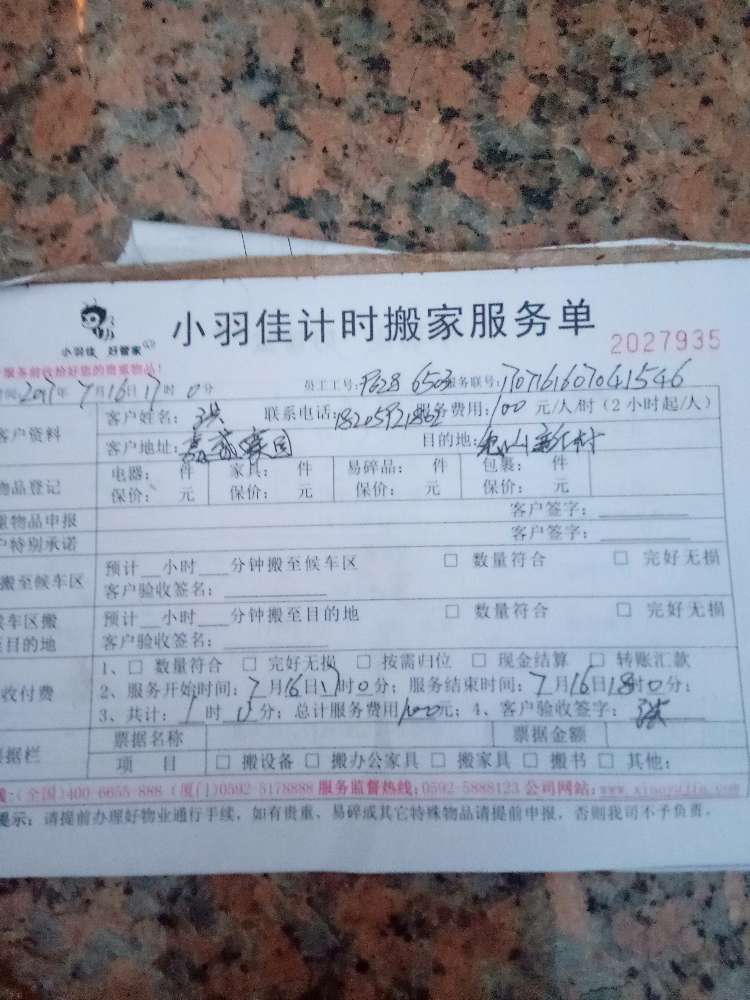 小羽佳计时搬家服务单
2027935
小羽佳 好管家
服务前收拾好您的贵重物品!
时间:2017年7月16日17时0分 员工工号: 服务联号:170716160704 1546
客户资料 客户姓名:洪 联系电话: 服务费用:100元/人/时(2小时起/人)
客户地址: 目的地:
物品登记 电器: 件 家具: 件 易碎品: 件 包裹: 件
保价: 元 保价: 元 保价: 元 保价: 元
物品申报 客户签字:
户特别承诺 客户签字:
搬至候车区 预计__小时__分钟搬至候车区 □ 数量符合 □ 完好无损
客户验收签名:
候车区搬 预计__小时__分钟搬至目的地 □ 数量符合 □ 完好无损
至目的地 客户验收签名:
1、□ 数量符合 □ 完好无损 □ 按需归位 □ 现金结算 □ 转账汇款
收付费 2、服务开始时间:7月16日17时0分;服务结束时间:7月16日18时0分;
3、共计:1时0分;总计服务费用100元;4、客户验收签字:洪
票据栏 票据名称 票据金额
项 目 □ 搬设备 □ 搬办公家具 □ 搬家具 □ 搬书 □ 其他:
线:(全国)400-6655-888 (厦门)0592-5178888 服务监督热线:0592-5888123 公司网站:www.xiaoyujia.com
提示:请提前办理好物业通行手续,如有贵重、易碎或其它特殊物品请提前申报,否则我司不予负责。